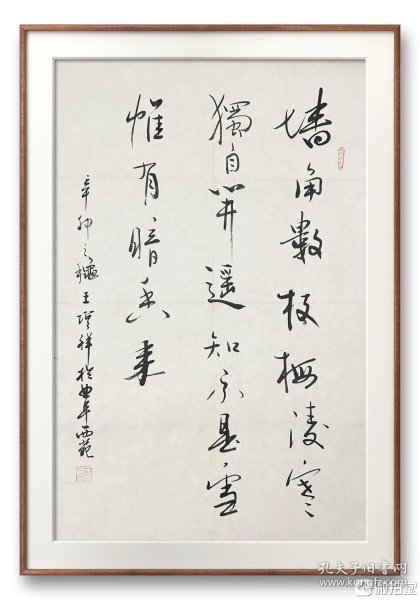 墙角數枝梅凌寒
獨自開遥知不是雪
惟有暗香来
辛卯之穐王祥於曲阜西苑
孔夫子旧书网
微拍堂